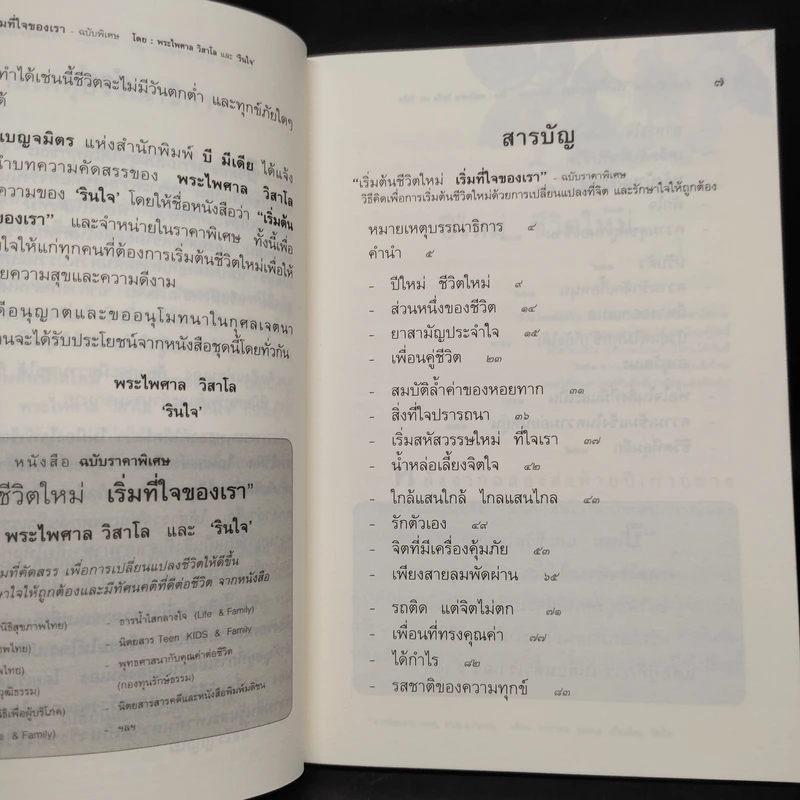 มที่ใจของเรา - ฉบับพิเศษ โดย : พระไพศาล วิสาโล และ 'รินใจ'
ทำได้เช่นนี้ชีวิตจะไม่มีวันตกต่ำ และทุกข์ภัยใดๆ
ด้
เบญจมิตร แห่งสำนักพิมพ์ บี มีเดีย ได้แจ้ง
นำบทความคัดสรรของ พระไพศาล วิสาโล
ความของ 'รินใจ' โดยให้ชื่อหนังสือว่า "เริ่มต้น
ของเรา" และจำหน่ายในราคาพิเศษ ทั้งนี้เพื่อ
ใจให้แก่ทุกคนที่ต้องการเริ่มต้นชีวิตใหม่เพื่อให้
ยความสุขและความดีงาม
ดีอนุญาตและขออนุโมทนาในกุศลเจตนา
านจะได้รับประโยชน์จากหนังสือชุดนี้โดยทั่วกัน
พระไพศาล วิสาโล
'รินใจ'
หนังสือ ฉบับราคาพิเศษ
ชีวิตใหม่ เริ่มที่ใจของเรา"
พระไพศาล วิสาโล และ 'รินใจ'
มที่คัดสรร เพื่อการเปลี่ยนแปลงชีวิตให้ดีขึ้น
ษาใจให้ถูกต้องและมีทัศนคติที่ดีต่อชีวิต จากหนังสือ
นิธิสุขภาพไทย) - ธารน้ำใสกลางใจ (Life & Family)
พไทย) - นิตยสาร Teen KIDS & Family
พไทย) - พุทธศาสนากับคุณค่าต่อชีวิต
วุฒิธรรม) (กองทุนรักษ์ธรรม)
นิธิเพื่อผู้บริโภค) - นิตยสารสารคดีและหนังสือพิมพ์มติชน
& Family) - ฯลฯ
๗
สารบัญ
"เริ่มต้นชีวิตใหม่ เริ่มที่ใจของเรา" - ฉบับราคาพิเศษ
วิธีคิดเพื่อการเริ่มต้นชีวิตใหม่ด้วยการเปลี่ยนแปลงที่จิต และรักษาใจให้ถูกต้อง
หมายเหตุบรรณาธิการ ๔
คำนำ ๕
- ปีใหม่ ชีวิตใหม่ ๙
- ส่วนหนึ่งของชีวิต ๑๔
- ยาสามัญประจำใจ ๑๕
- เพื่อนคู่ชีวิต ๒๓
- สมบัติล้ำค่าของหอยทาก ๓๑
- สิ่งที่ใจปรารถนา ๓๖
- เริ่มสหัสวรรษใหม่ ที่ใจเรา ๓๗
- น้ำหล่อเลี้ยงจิตใจ ๔๒
- ใกล้แสนใกล้ ไกลแสนไกล ๔๓
- รักตัวเอง ๔๙
- จิตที่มีเครื่องคุ้มภัย ๕๓
- เพียงสายลมพัดผ่าน ๖๕
- รถติด แต่จิตไม่ตก ๗๑
- เพื่อนที่ทรงคุณค่า ๗๗
- ได้กำไร ๘๒
- รสชาติของความทุกข์ ๘๓